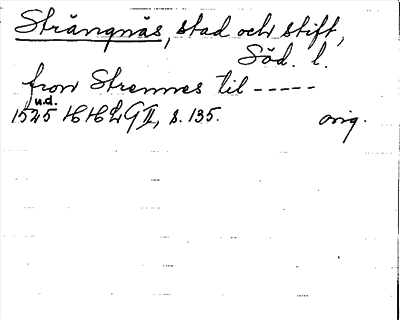 Strängnäs, stad och stift,
Söd. l.
fron Strennes til -----
u.d.
1525 HH 2 G II, s. 135. orig.